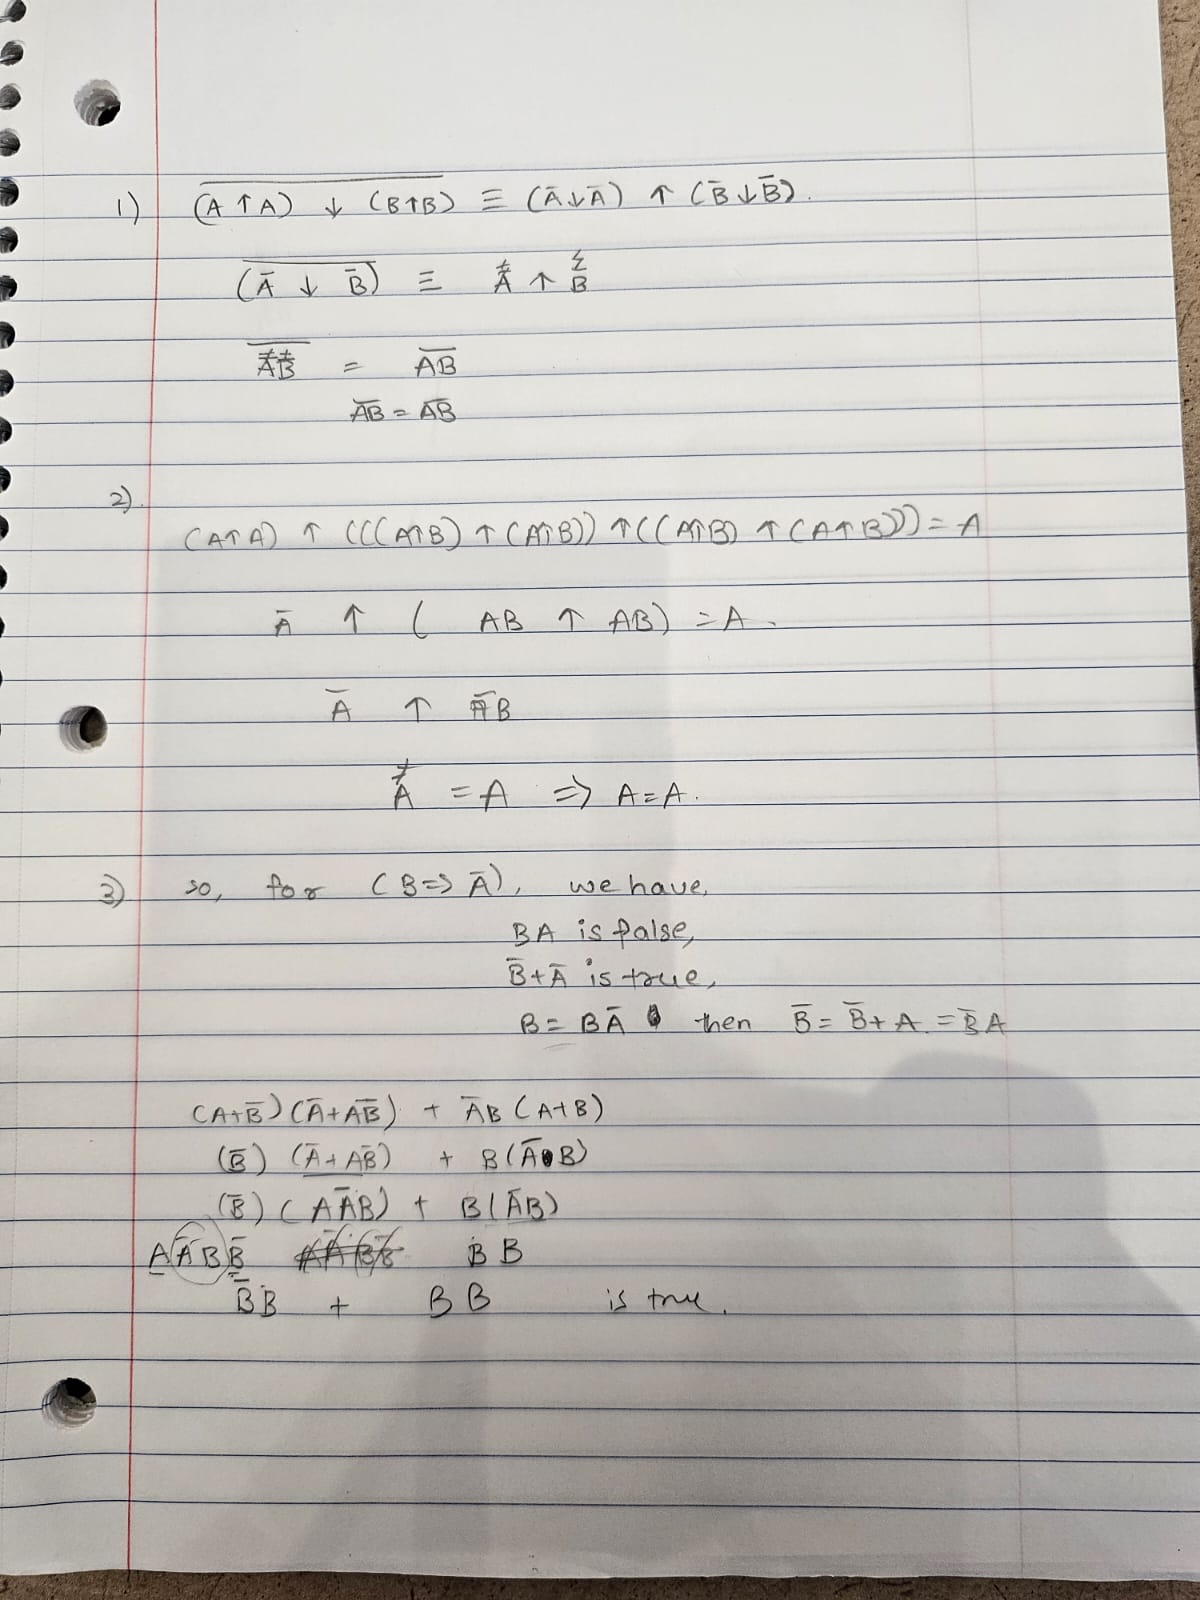 1) (A̅ ̅↑̅ ̅A̅)̅ ̅↓̅ ̅(̅B̅↑̅B̅)̅ ≡ (Ā↓Ā) ↑ (B̄↓B̄).
(Ā̅ ̅↓̅ ̅B̄̅) ≡ A̿ ↑ B̿
A̿̅B̿̅ = A̅B̅
A̅B̅ = A̅B̅
2).
(A↑A) ↑ (((A↑B) ↑ (A↑B)) ↑ ((A↑B) ↑ (A↑B))) = A
Ā ↑ ( AB ↑ AB) = A.
Ā ↑ A̅B̅
A̿ = A ⇒ A=A.
3) so, for (B⇒Ā), we have,
BA is false,
B̄+Ā is true,
B = BĀ then B̄ = B̄+A. = B̄A
(A+B̄)(Ā+AB̄) + ĀB(A+B)
(B̄) (Ā+AB̄) + B(ĀB)
(B̄) (AĀB) + B(ĀB)
AĀBB̄ BB
B̄B + BB is true.